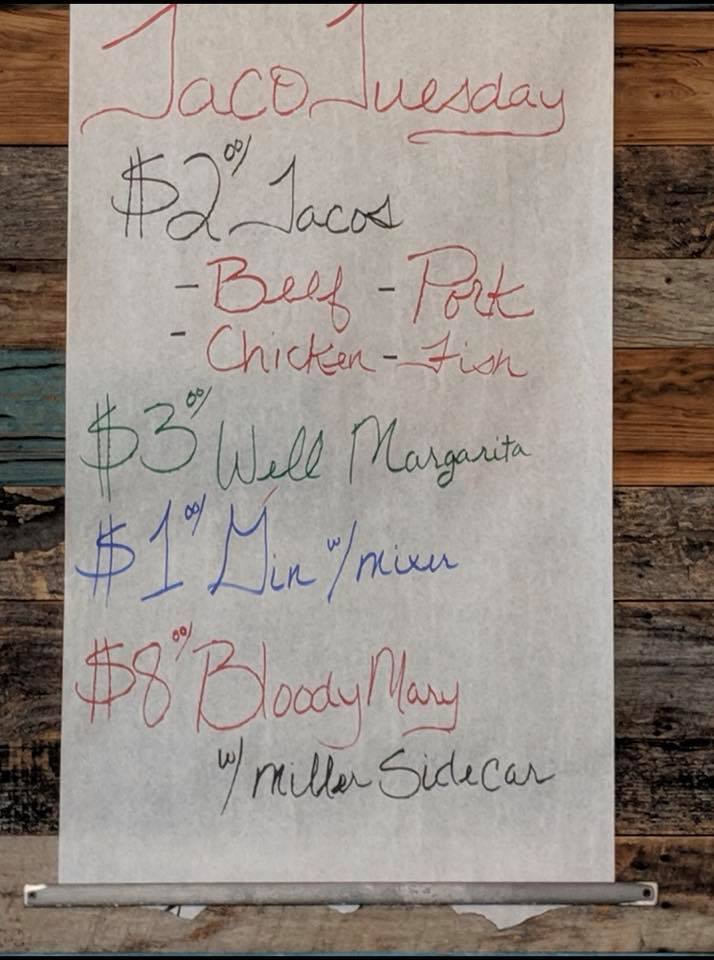 Taco Tuesday
$2.00/ Tacos
- Beef - Pork
- Chicken - Fish
$3.00/ Well Margarita
$1.00/ Gin w/ mixer
$8.00/ Bloody Mary
w/ miller Sidecar